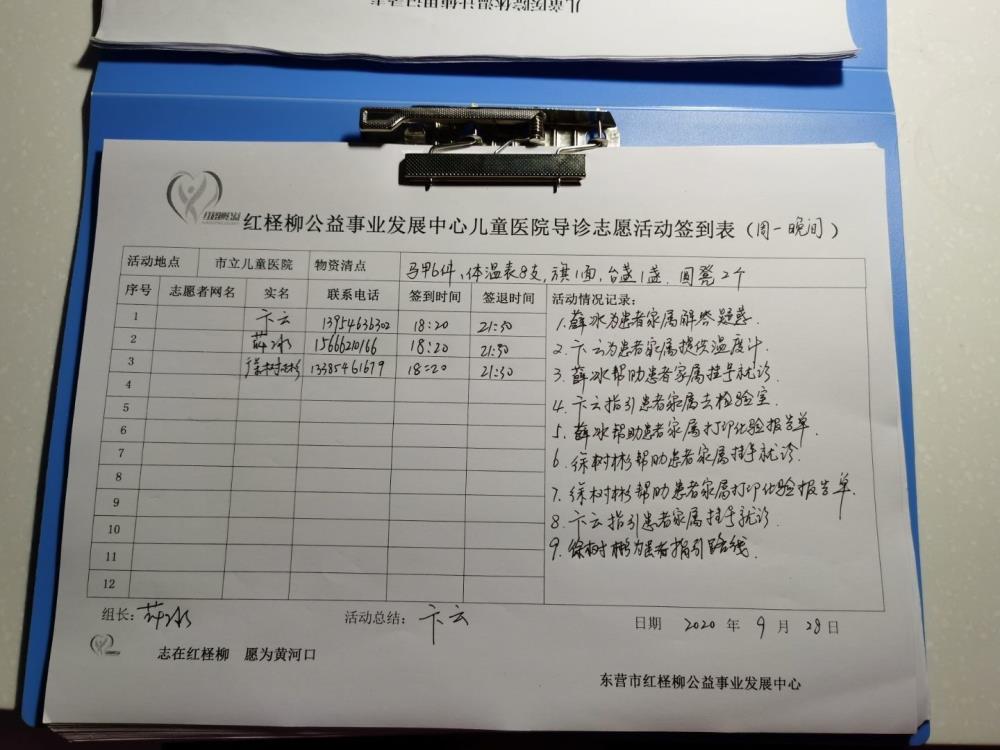 儿童医院体温计使用记录表
红柽柳公益事业发展中心儿童医院导诊志愿活动签到表（周一晚间）
活动地点 市立儿童医院 物资清点 马甲6件、体温表8支,旗1面,台蓝1盏.圆凳2个
序号 志愿者网名 实名 联系电话 签到时间 签退时间 活动情况记录:
1 卞云 13954636302 18:20 21:30
2 薛冰 15666210166 18:20 21:30
3 徐树彬 13385461679 18:20 21:30
4
5
6
7
8
9
10
11
12
1.薛冰为患者家属解答疑惑.
2.卞云为患者家属提供温度计.
3.薛冰帮助患者家属挂号就诊.
4.卞云指引患者家属去检验室.
5.薛冰帮助患者家属打印化验报告单.
6.徐树彬帮助患者家属挂号就诊.
7.徐树彬帮助患者家属打印化验报告单.
8.卞云指引患者家属挂号就诊.
9.徐树彬为患者指引路线.
组长:薛冰 活动总结:卞云 日期 2020 年 9 月 28 日
志在红柽柳 愿为黄河口
东营市红柽柳公益事业发展中心